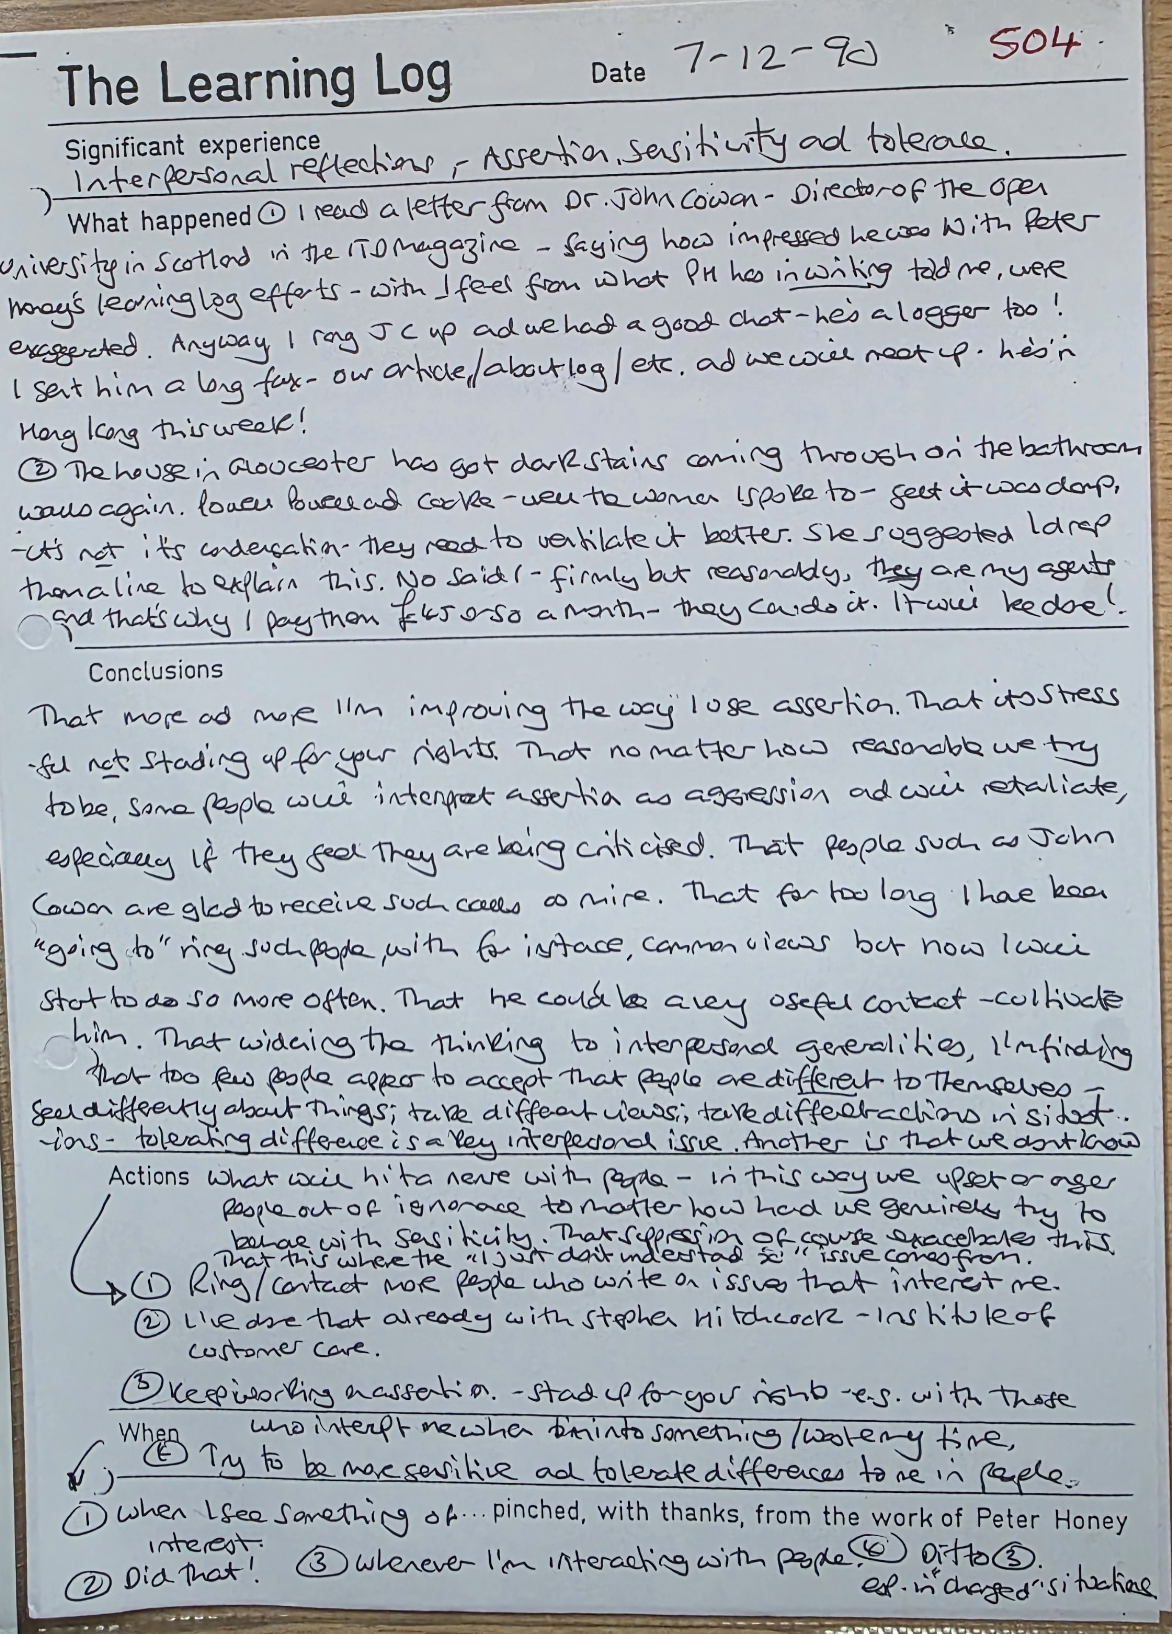 The Learning Log Date 7-12-90 504
Significant experience
Interpersonal reflections, - Assertion, sensitivity ad tolerace.
What happened ① I read a letter from Dr. John Cowan - Director of the Open
University in Scotland in the ITD magazine - saying how impressed he was with Peter
Honey's learning log efforts - with I feel from what PH has in writing told me, were
exaggerated. Anyway I rang JC up ad we had a good chat - he's a logger too!
I sent him a long fax - our article/about log/etc. ad we will meet up. he's in
Hong Kong this week!
② The house in Gloucester has got dark stains coming through on the bathroom
walls again. ad Cooke - well the women I spoke to - felt it was damp,
-it's not it's condensation - they need to ventilate it better. She suggested I drop
them a line to explain this. No said I - firmly but reasonably, they are my agents
and that's why I pay them £45 or so a month - they can do it. It will be done!
Conclusions
That more ad more I'm improving the way I use assertion. That its stress
-ful not stading up for your rights. That no matter how reasonable we try
to be, some people will interpret assertion as aggression ad will retaliate,
especially if they feel they are being criticised. That people such as John
Cowan are glad to receive such calls as mine. That for too long I have been
"going to" ring such people, with for instace, common views but now I will
start to do so more often. That he could be a very useful contact - cultivate
him. That widening the thinking to interpersonal generalities, I'm finding
that too few people appear to accept that people are different to themselves -
feel differently about things; take different views; take different actions in situat..
-ions - tolerating difference is a key interpersonal issue. Another is that we dont know
Actions what will hit a nerve with people - in this way we upset or anger
people out of ignorace no matter how hard we genuinely try to
behave with sensitivity. That suppression of course exacerbates this.
That this where the "I just don't understad x!" issue comes from.
① Ring/contact more people who write on issues that interest me.
② I've done that already with Stephen Hitchcock - Institute of
customer care.
③ Keep working on assertion. - stad up for your rights - e.g. with those
who interrupt me when I'm into something/waste my time,
When
④ Try to be more sensitive ad tolerate differences to me in people.
① When I see something of ... pinched, with thanks, from the work of Peter Honey
interest.
② Did that! ③ Whenever I'm interacting with people. ④ Ditto ③.
esp. in "charged" situations